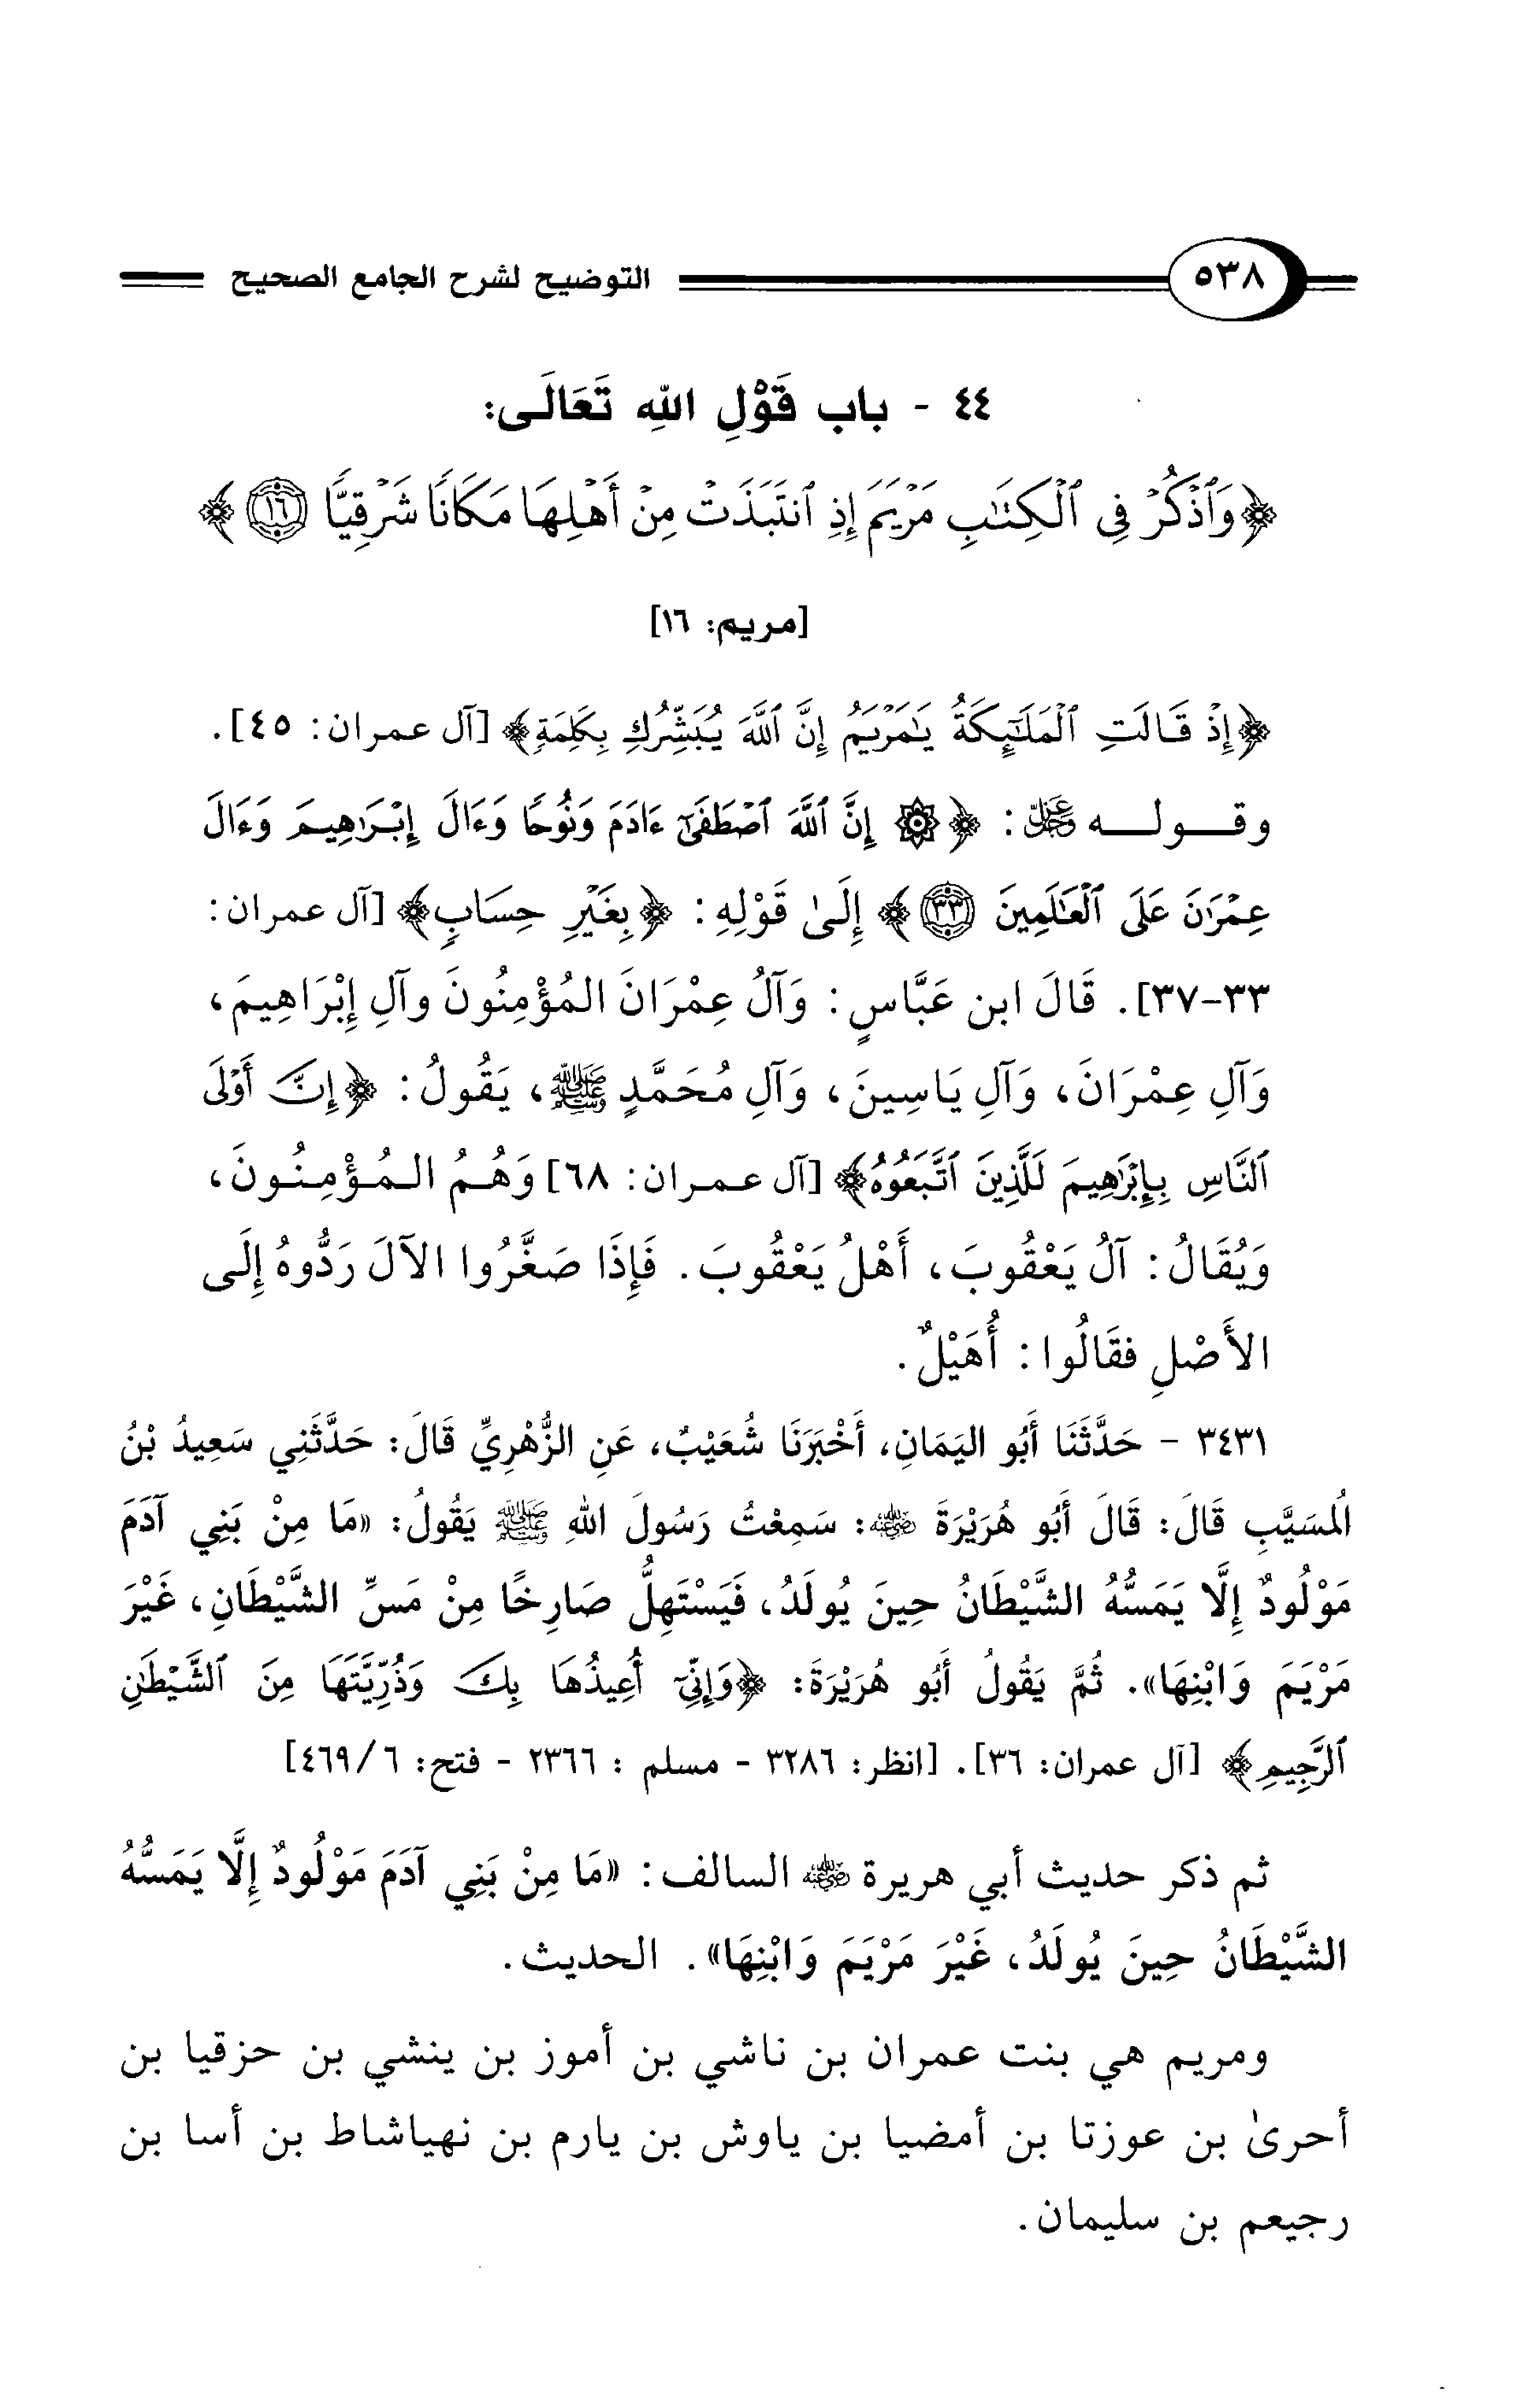 ٥٣٨ التوضيح لشرح الجامع الصحيح
٤٤ - باب قَوْلِ اللهِ تَعَالَى:
﴿وَٱذْكُرْ فِى ٱلْكِتَٰبِ مَرْيَمَ إِذِ ٱنتَبَذَتْ مِنْ أَهْلِهَا مَكَانًا شَرْقِيًّا ١٦﴾
[مريم: ١٦]
﴿إِذْ قَالَتِ ٱلْمَلَٰٓئِكَةُ يَٰمَرْيَمُ إِنَّ ٱللَّهَ يُبَشِّرُكِ بِكَلِمَةٍ﴾ [آل عمران: ٤٥].
وقوله عَزَّ وَجَلَّ: ﴿۞ إِنَّ ٱللَّهَ ٱصْطَفَىٰٓ ءَادَمَ وَنُوحًا وَءَالَ إِبْرَٰهِيمَ وَءَالَ
عِمْرَٰنَ عَلَى ٱلْعَٰلَمِينَ ٣٣﴾ إِلَىٰ قَوْلِهِ: ﴿بِغَيْرِ حِسَابٍ﴾ [آل عمران:
٣٣-٣٧]. قَالَ ابن عَبَّاسٍ: وَآلُ عِمْرَانَ المُؤْمِنُونَ وآلِ إِبْرَاهِيمَ،
وَآلِ عِمْرَانَ، وَآلِ يَاسِينَ، وَآلِ مُحَمَّدٍ ﷺ، يَقُولُ: ﴿إِنَّ أَوْلَى
ٱلنَّاسِ بِإِبْرَٰهِيمَ لَلَّذِينَ ٱتَّبَعُوهُ﴾ [آل عمران: ٦٨] وَهُمُ المُؤْمِنُونَ،
وَيُقَالُ: آلُ يَعْقُوبَ، أَهْلُ يَعْقُوبَ. فَإِذَا صَغَّرُوا الآلَ رَدُّوهُ إِلَى
الأَصْلِ فقَالُوا: أُهَيْلٌ.
٣٤٣١ - حَدَّثَنَا أَبُو اليَمَانِ، أَخْبَرَنَا شُعَيْبٌ، عَنِ الزُّهْرِيِّ قَالَ: حَدَّثَنِي سَعِيدُ بْنُ
المُسَيَّبِ قَالَ: قَالَ أَبُو هُرَيْرَةَ رضي الله عنه: سَمِعْتُ رَسُولَ اللهِ ﷺ يَقُولُ: «مَا مِنْ بَنِي آدَمَ
مَوْلُودٌ إِلَّا يَمَسُّهُ الشَّيْطَانُ حِينَ يُولَدُ، فَيَسْتَهِلُّ صَارِخًا مِنْ مَسِّ الشَّيْطَانِ، غَيْرَ
مَرْيَمَ وَابْنِهَا». ثُمَّ يَقُولُ أَبُو هُرَيْرَةَ: ﴿وَإِنِّىٓ أُعِيذُهَا بِكَ وَذُرِّيَّتَهَا مِنَ ٱلشَّيْطَٰنِ
ٱلرَّجِيمِ﴾ [آل عمران: ٣٦]. [انظر: ٣٢٨٦ - مسلم : ٢٣٦٦ - فتح: ٦/ ٤٦٩]
ثم ذكر حديث أبي هريرة رضي الله عنه السالف: «مَا مِنْ بَنِي آدَمَ مَوْلُودٌ إِلَّا يَمَسُّهُ
الشَّيْطَانُ حِينَ يُولَدُ، غَيْرَ مَرْيَمَ وَابْنِهَا». الحديث.
ومريم هي بنت عمران بن ناشي بن أموز بن ينشي بن حزقيا بن
أحرىٰ بن عوزتا بن أمضيا بن ياوش بن يارم بن نهياشاط بن أسا بن
رجيعم بن سليمان.